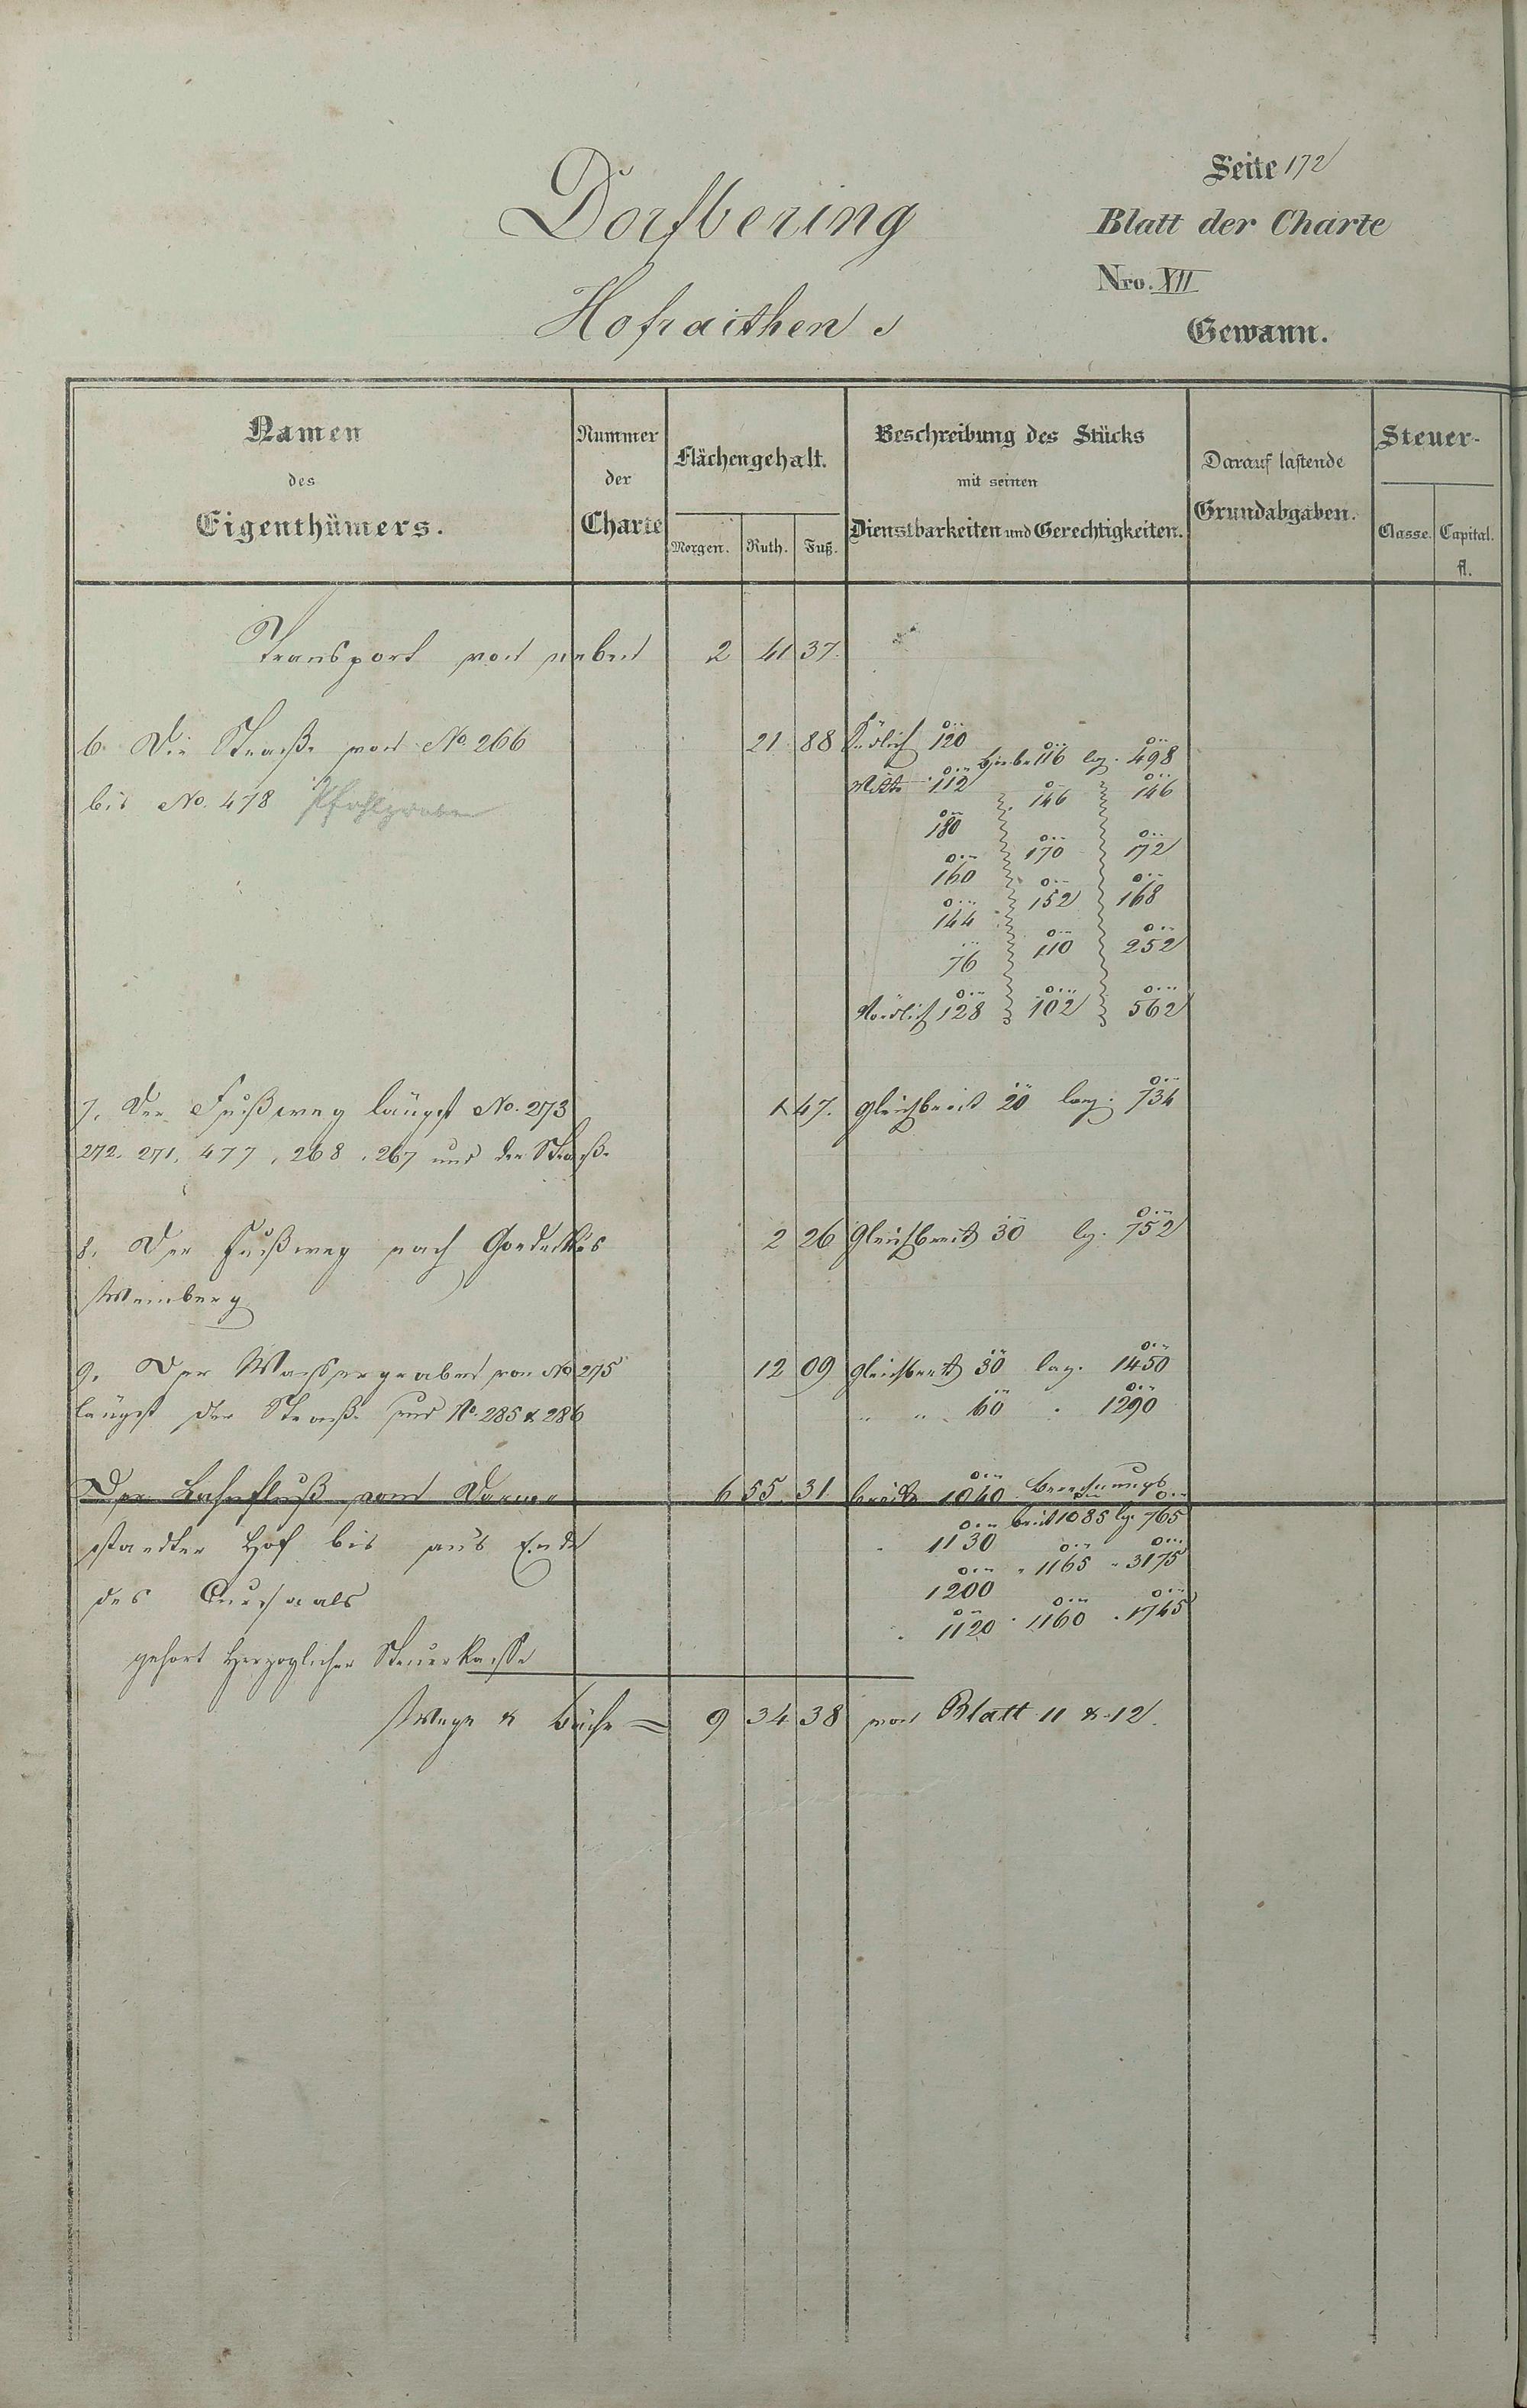 Seite 172
Dorfbering
Blatt der Charte
Nro. XII
Hofraithen
Gewann.
Namen des Eigenthümers.
Nummer der Charte
Flächengehalt.
Morgen. Ruth. Fuß.
Beschreibung des Stücks mit seinen Dienstbarkeiten und Gerechtigkeiten.
Darauf lastende Grundabgaben.
Steuer-
Classe. Capital. fl.
Transport von neben 2 41 37.
6. Die Straße von No. 266 21 88 Südlich 120
breite 116 lg. 498
bis No. 478 Pfahlgraben Mitte 112
146 146
180
170 172
160
152 168
144
110 252
76
Nördlich 128 102 562
7. Der Fußweg längst No. 273 1 47. gleichbreit 20 lang. 734
272. 271. 477, 268, 267 und der Straße
8. Der Fußweg nach 2 26 Gleichbreit 30 lg. 752
Weinberg
9. Der Wassergraben von No 275 12 09 gleichbreit 30 lang. 1450
längst der Straße und No. 285 & 286 " " 60 " 1290
Der Lahnfluß vom Darm- 6 55. 31. breite 1040 Berechnungs
breit 1085 lg. 765
staedter Hof bis ans Ende " 1130
" 1165 " 3175
des Cursaals 1200
" 1120 " 1160 " 1745
gehört Herzoglicher Steuerkasse
Wege & Bäche = 9 34 38 von Blatt 11 & 12.